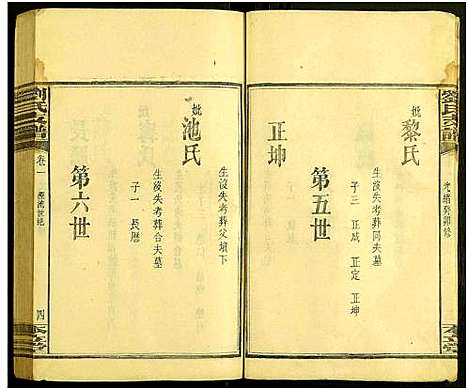 妣黎氏
生沒失考葬同夫墓
子三 正咸 正定 正坤
第五世
正坤
妣池氏
生沒失考葬父墳下
生沒失考葬合夫墓
子一 長曆
第六世
劉氏支譜
卷一
四